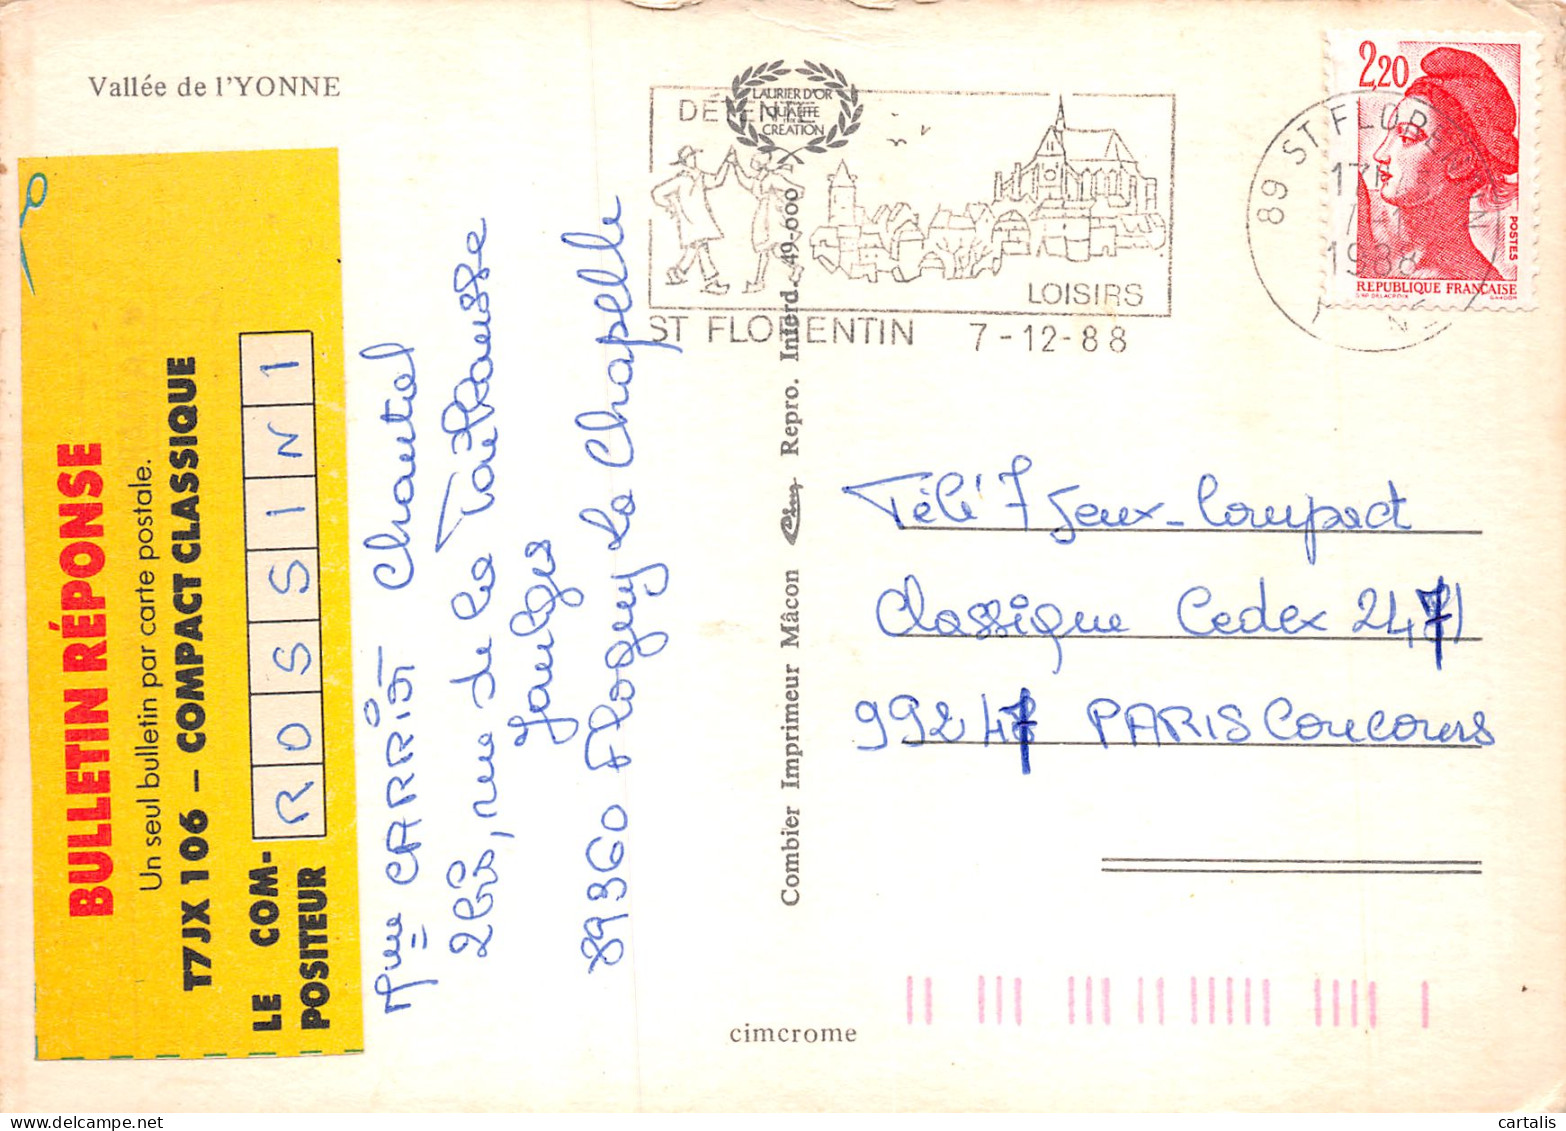 Vallée de l'YONNE
BULLETIN RÉPONSE
Un seul bulletin par carte postale.
T7JX 106 – COMPACT CLASSIQUE
LE COM-
POSITEUR
ROSSINI
Mme CARRIOT Chantal
2bis, rue de la
Jaulges
89360 Flogny la Chapelle
Combier Imprimeur Mâcon Repro. Interd. 49-000
cimcrome
DÉTENTE
LAURIER D'OR
QUALITÉ
CRÉATION
LOISIRS
ST FLORENTIN 7-12-88
89 ST FLORENTIN
17H
1988
YONNE
2,20
POSTES
REPUBLIQUE FRANÇAISE
D'AP DELACROIX GANDON
Télé 7 Jeux - Compact
Classique Cedex 2471
99247 PARIS Concours
cartalis